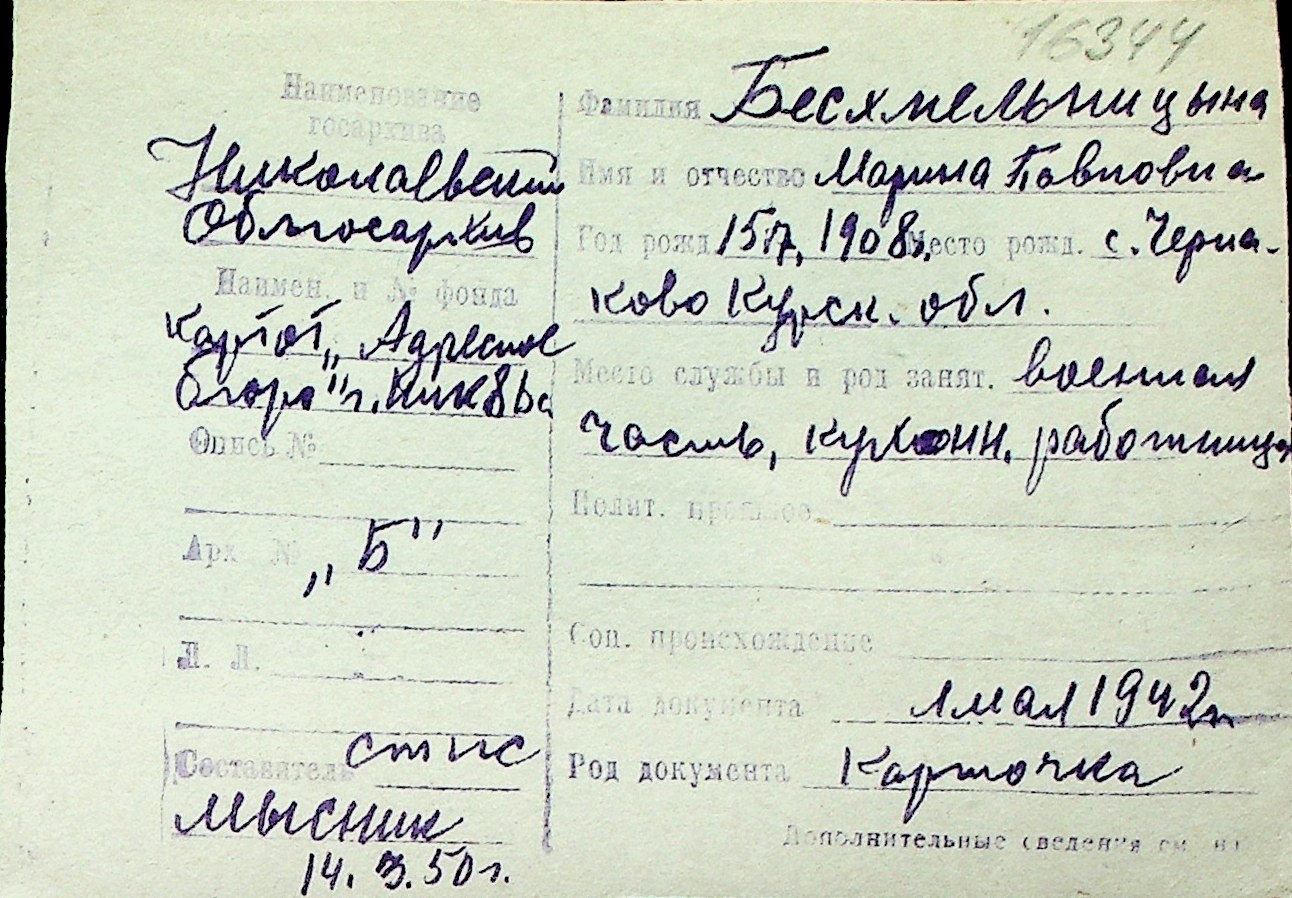 16344
Наименование
госархива
Николаевский
Облгосархив
Наимен. и № фонда
Картот. „Адресное
бюро" г. Ник-ва
Опись №
Арх. № „Б"
Л. Л.
Составитель
Мысник
14. 3. 50 г.
Фамилия Бесхмельницына
Имя и отчество Марина Павловна
Год рожд. 1908г. Место рожд. с. Черна-
ково Курск. обл.
Место службы и род занят. военная
часть, кухонн. работница
Полит. прошлое
Соц. происхождение
Дата документа 1 мая 1942г.
Род документа Карточка
Дополнительные сведения см. на